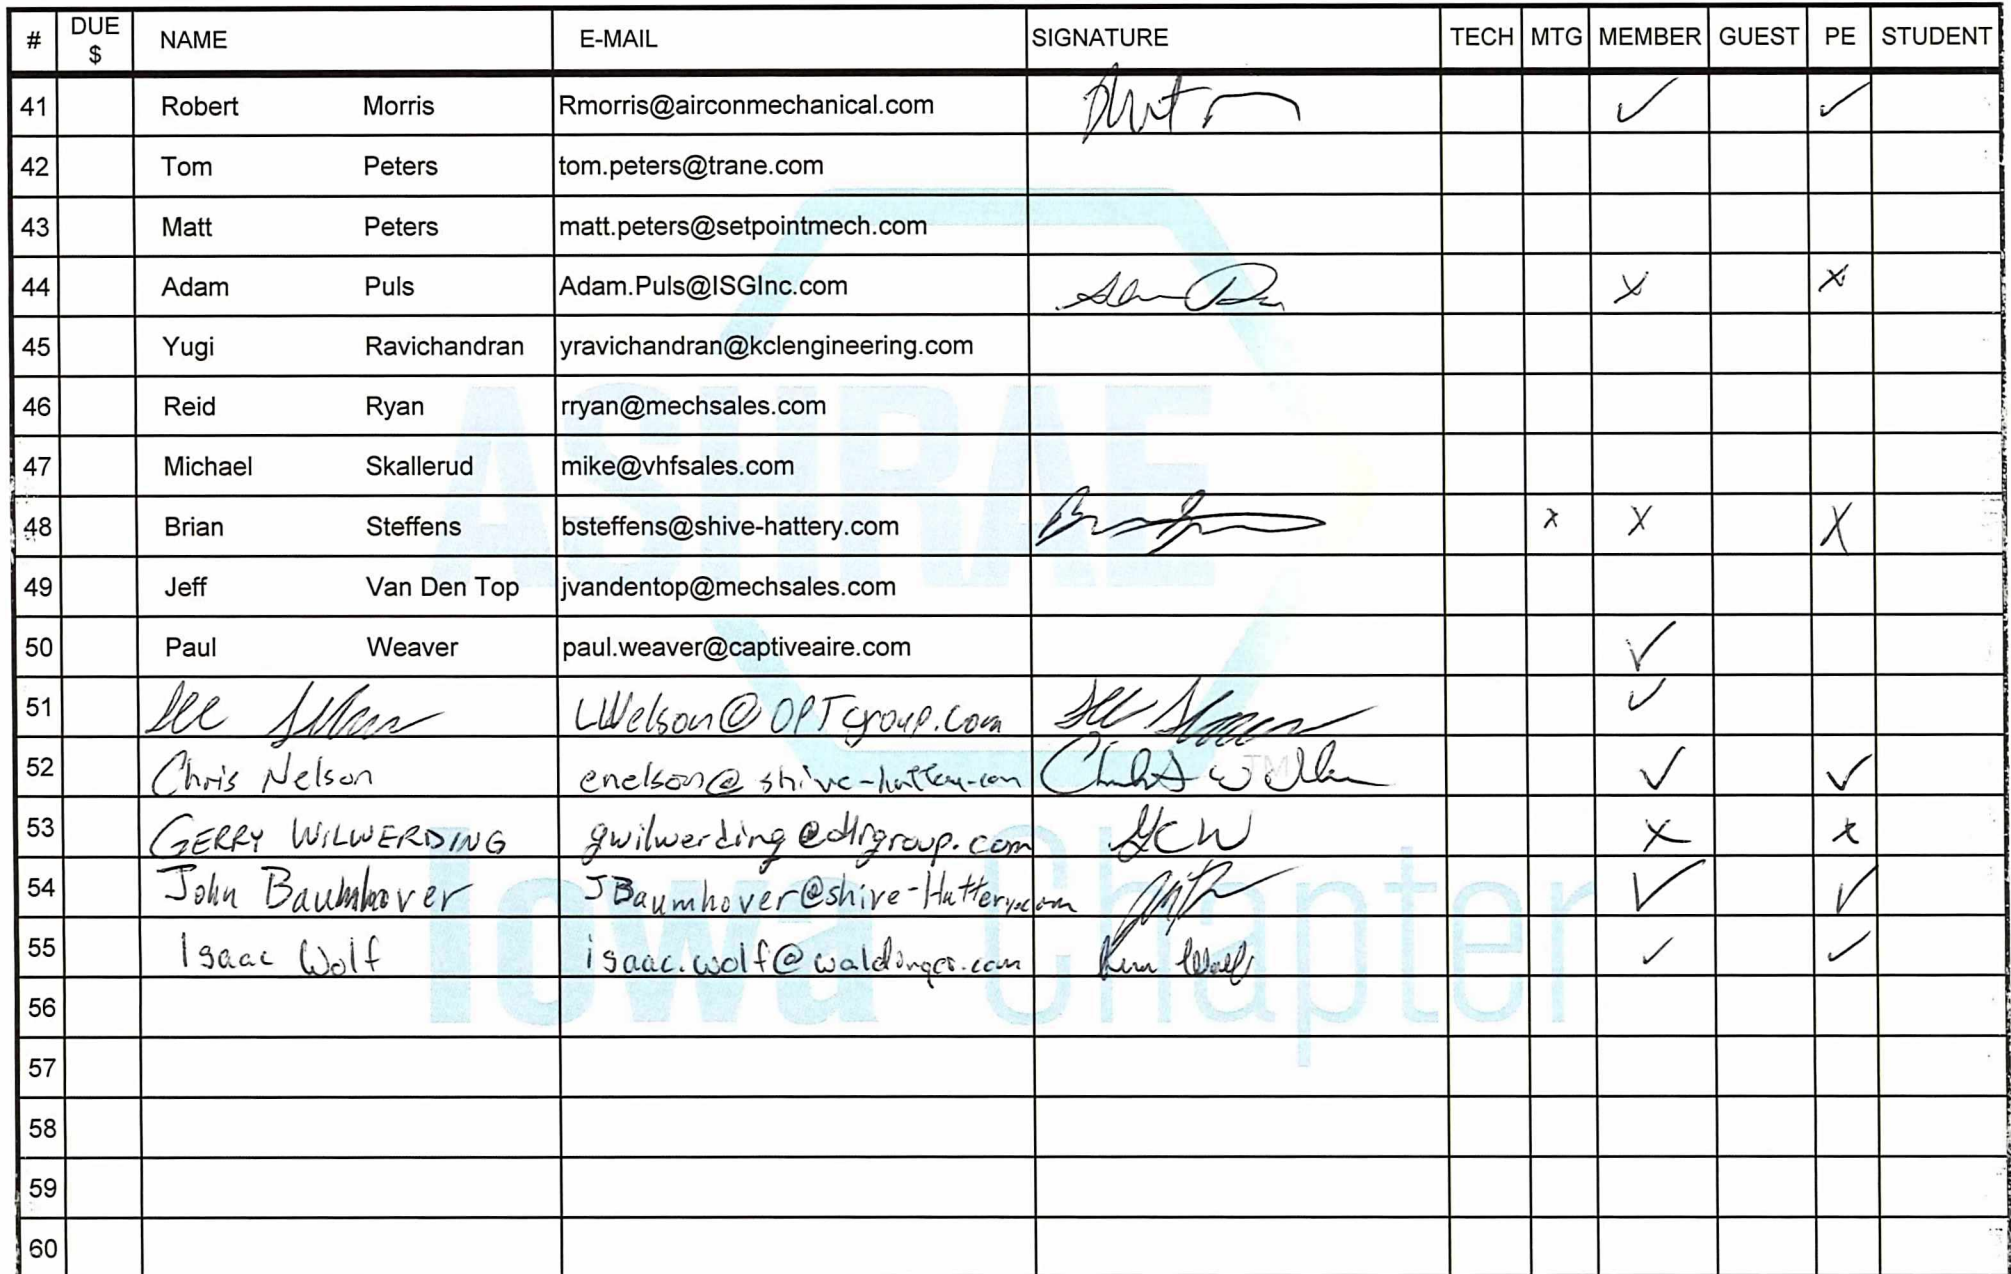 # DUE $ NAME E-MAIL SIGNATURE TECH MTG MEMBER GUEST PE STUDENT
41 Robert Morris Rmorris@airconmechanical.com ✓ ✓
42 Tom Peters tom.peters@trane.com
43 Matt Peters matt.peters@setpointmech.com
44 Adam Puls Adam.Puls@ISGInc.com X X
45 Yugi Ravichandran yravichandran@kclengineering.com
46 Reid Ryan rryan@mechsales.com
47 Michael Skallerud mike@vhfsales.com
48 Brian Steffens bsteffens@shive-hattery.com x X X
49 Jeff Van Den Top jvandentop@mechsales.com
50 Paul Weaver paul.weaver@captiveaire.com ✓
51 ✓
52 Chris Nelson ✓ ✓
53 GERRY WILWERDING gwilwerding@dlrgroup.com GCW X x
54 John Baumhover JBaumhover@shive-Hattery.com ✓ ✓
55 Isaac Wolf isaac.wolf@waldinger.com ✓ ✓
56
57
58
59
60
ASHRAE
TM
Iowa Chapter